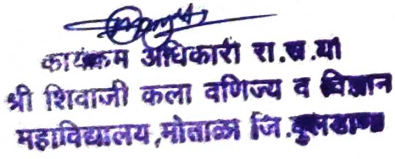 कार्यक्रम अधिकारी रा.से.यो
श्री शिवाजी कला वणिज्य व विज्ञान
महाविद्यालय,मोताळा जि.बुलडाणा